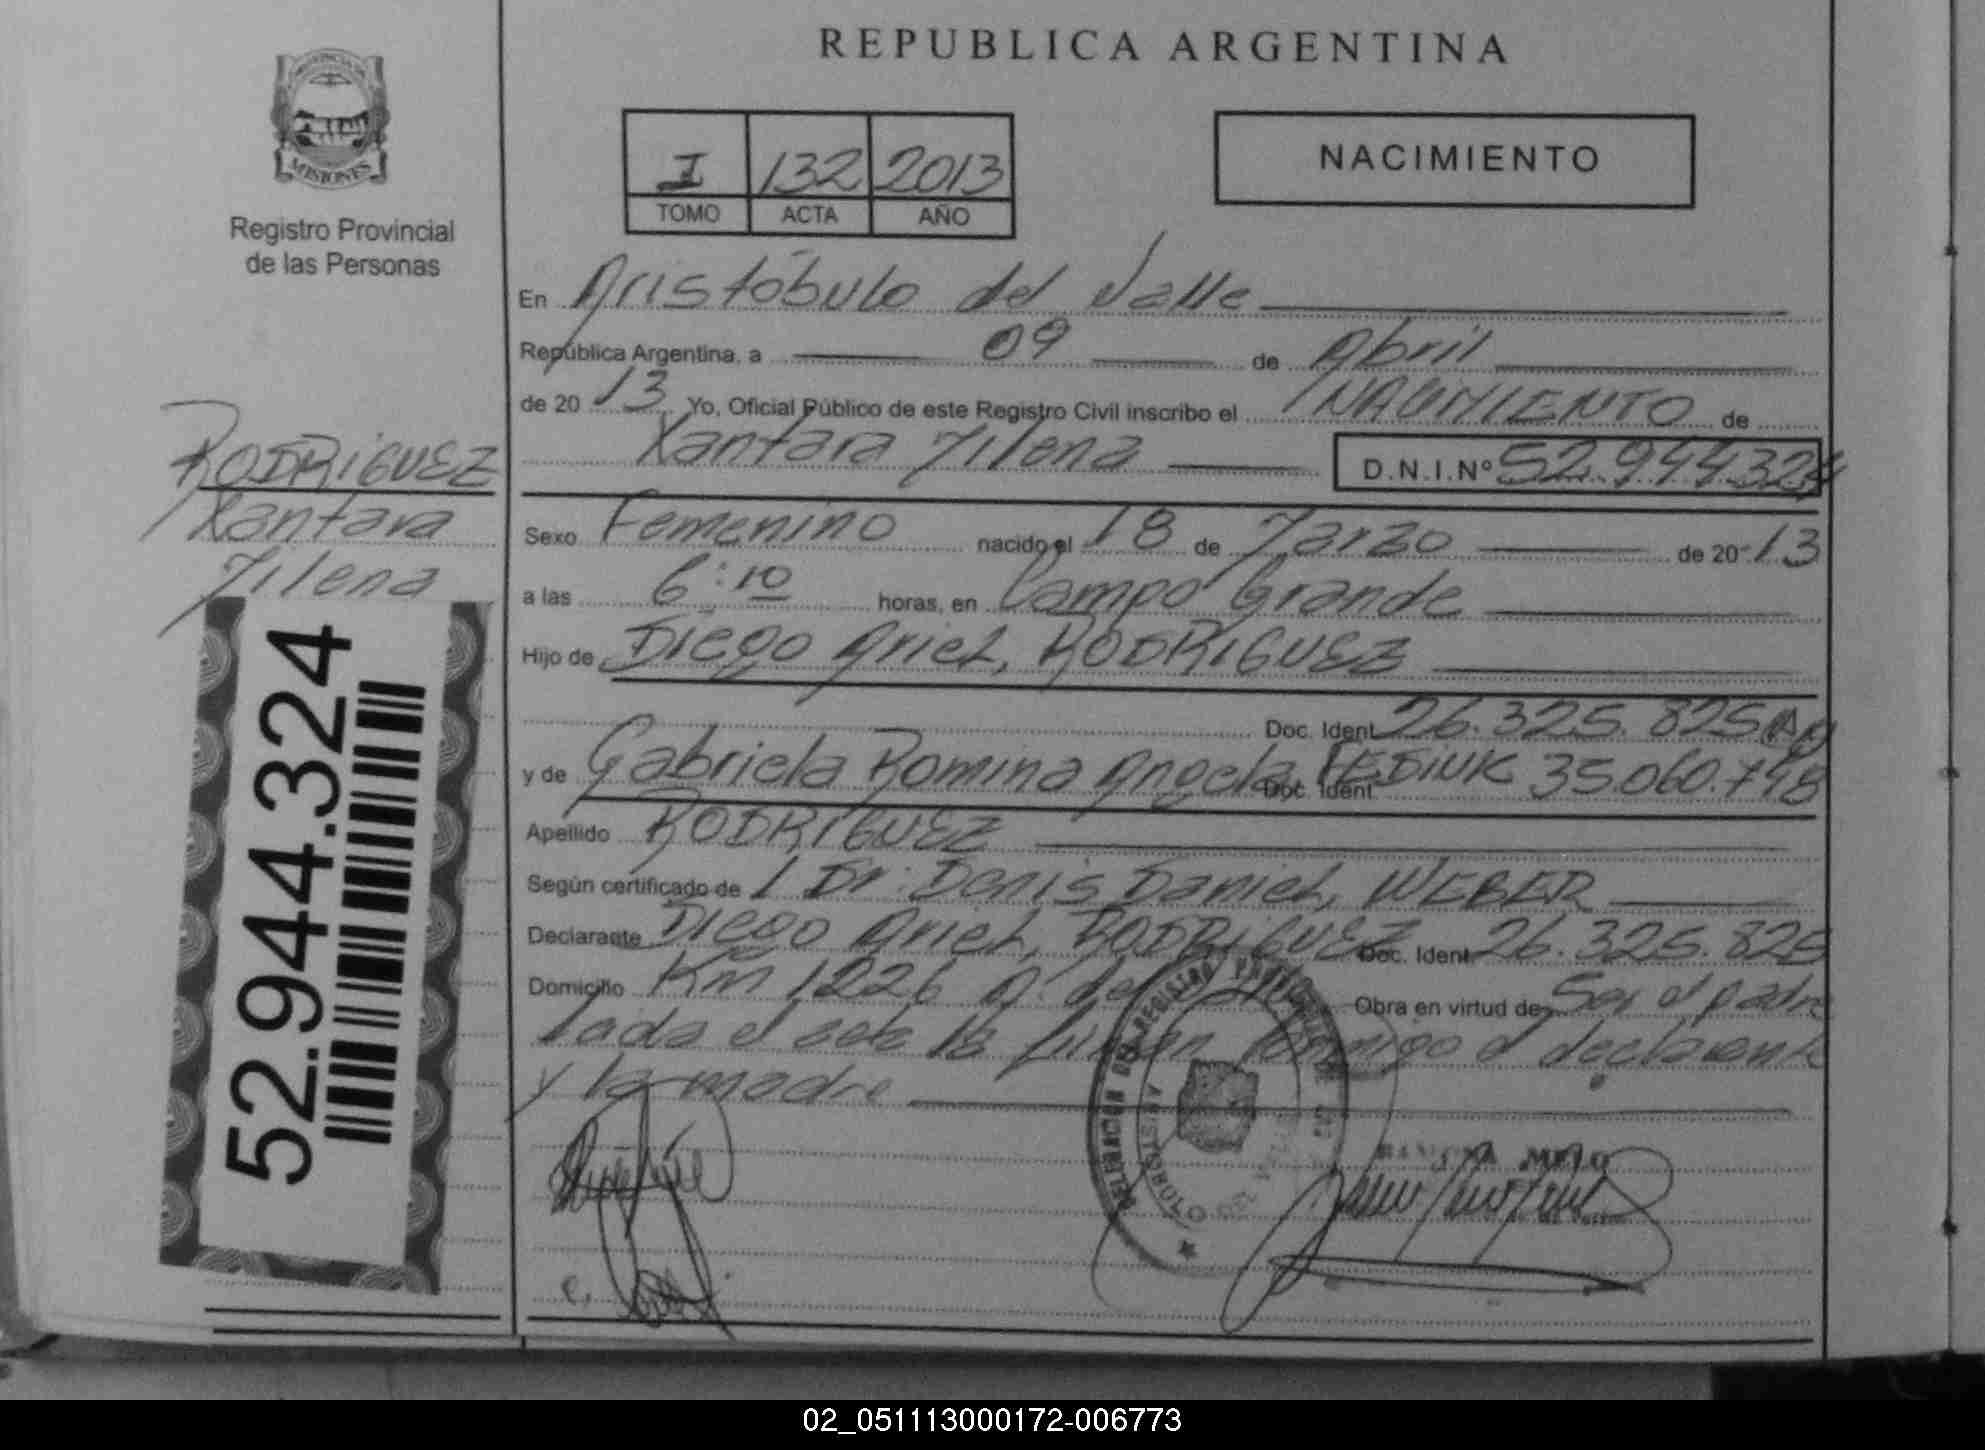 REPUBLICA ARGENTINA
PROVINCIA DE
MISIONES
Registro Provincial
de las Personas
I 132 2013
TOMO ACTA AÑO
NACIMIENTO
En Aristóbulo del Valle
República Argentina, a 09 de Abril
de 20 13 Yo, Oficial Público de este Registro Civil inscribo el NACIMIENTO de
Xantara Milena D.N.I.Nº 52.944324
RODRIGUEZ
Xantara
Milena
Sexo Femenino nacido el 18 de Marzo de 20 13
a las 6:10 horas, en Campo Grande
Hijo de Diego Ariel, RODRIGUEZ
Doc. Ident 26.325.825
y de Gabriela Romina Angela Doc. Ident 35.060.748
Apellido RODRIGUEZ
Según certificado de Dr. Denis Daniel, WEBER
Declarante Diego Ariel, RODRIGUEZ Doc. Ident 26.325.825
Domicilio Km 1226 A. del Valle Obra en virtud de Ser el padre
Leída el acta la firman conmigo el declarante
y la madre
52.944.324
DELEGACION DEL REGISTRO PROVINCIAL DE
ARISTOBULO DEL VALLE
02_051113000172-006773